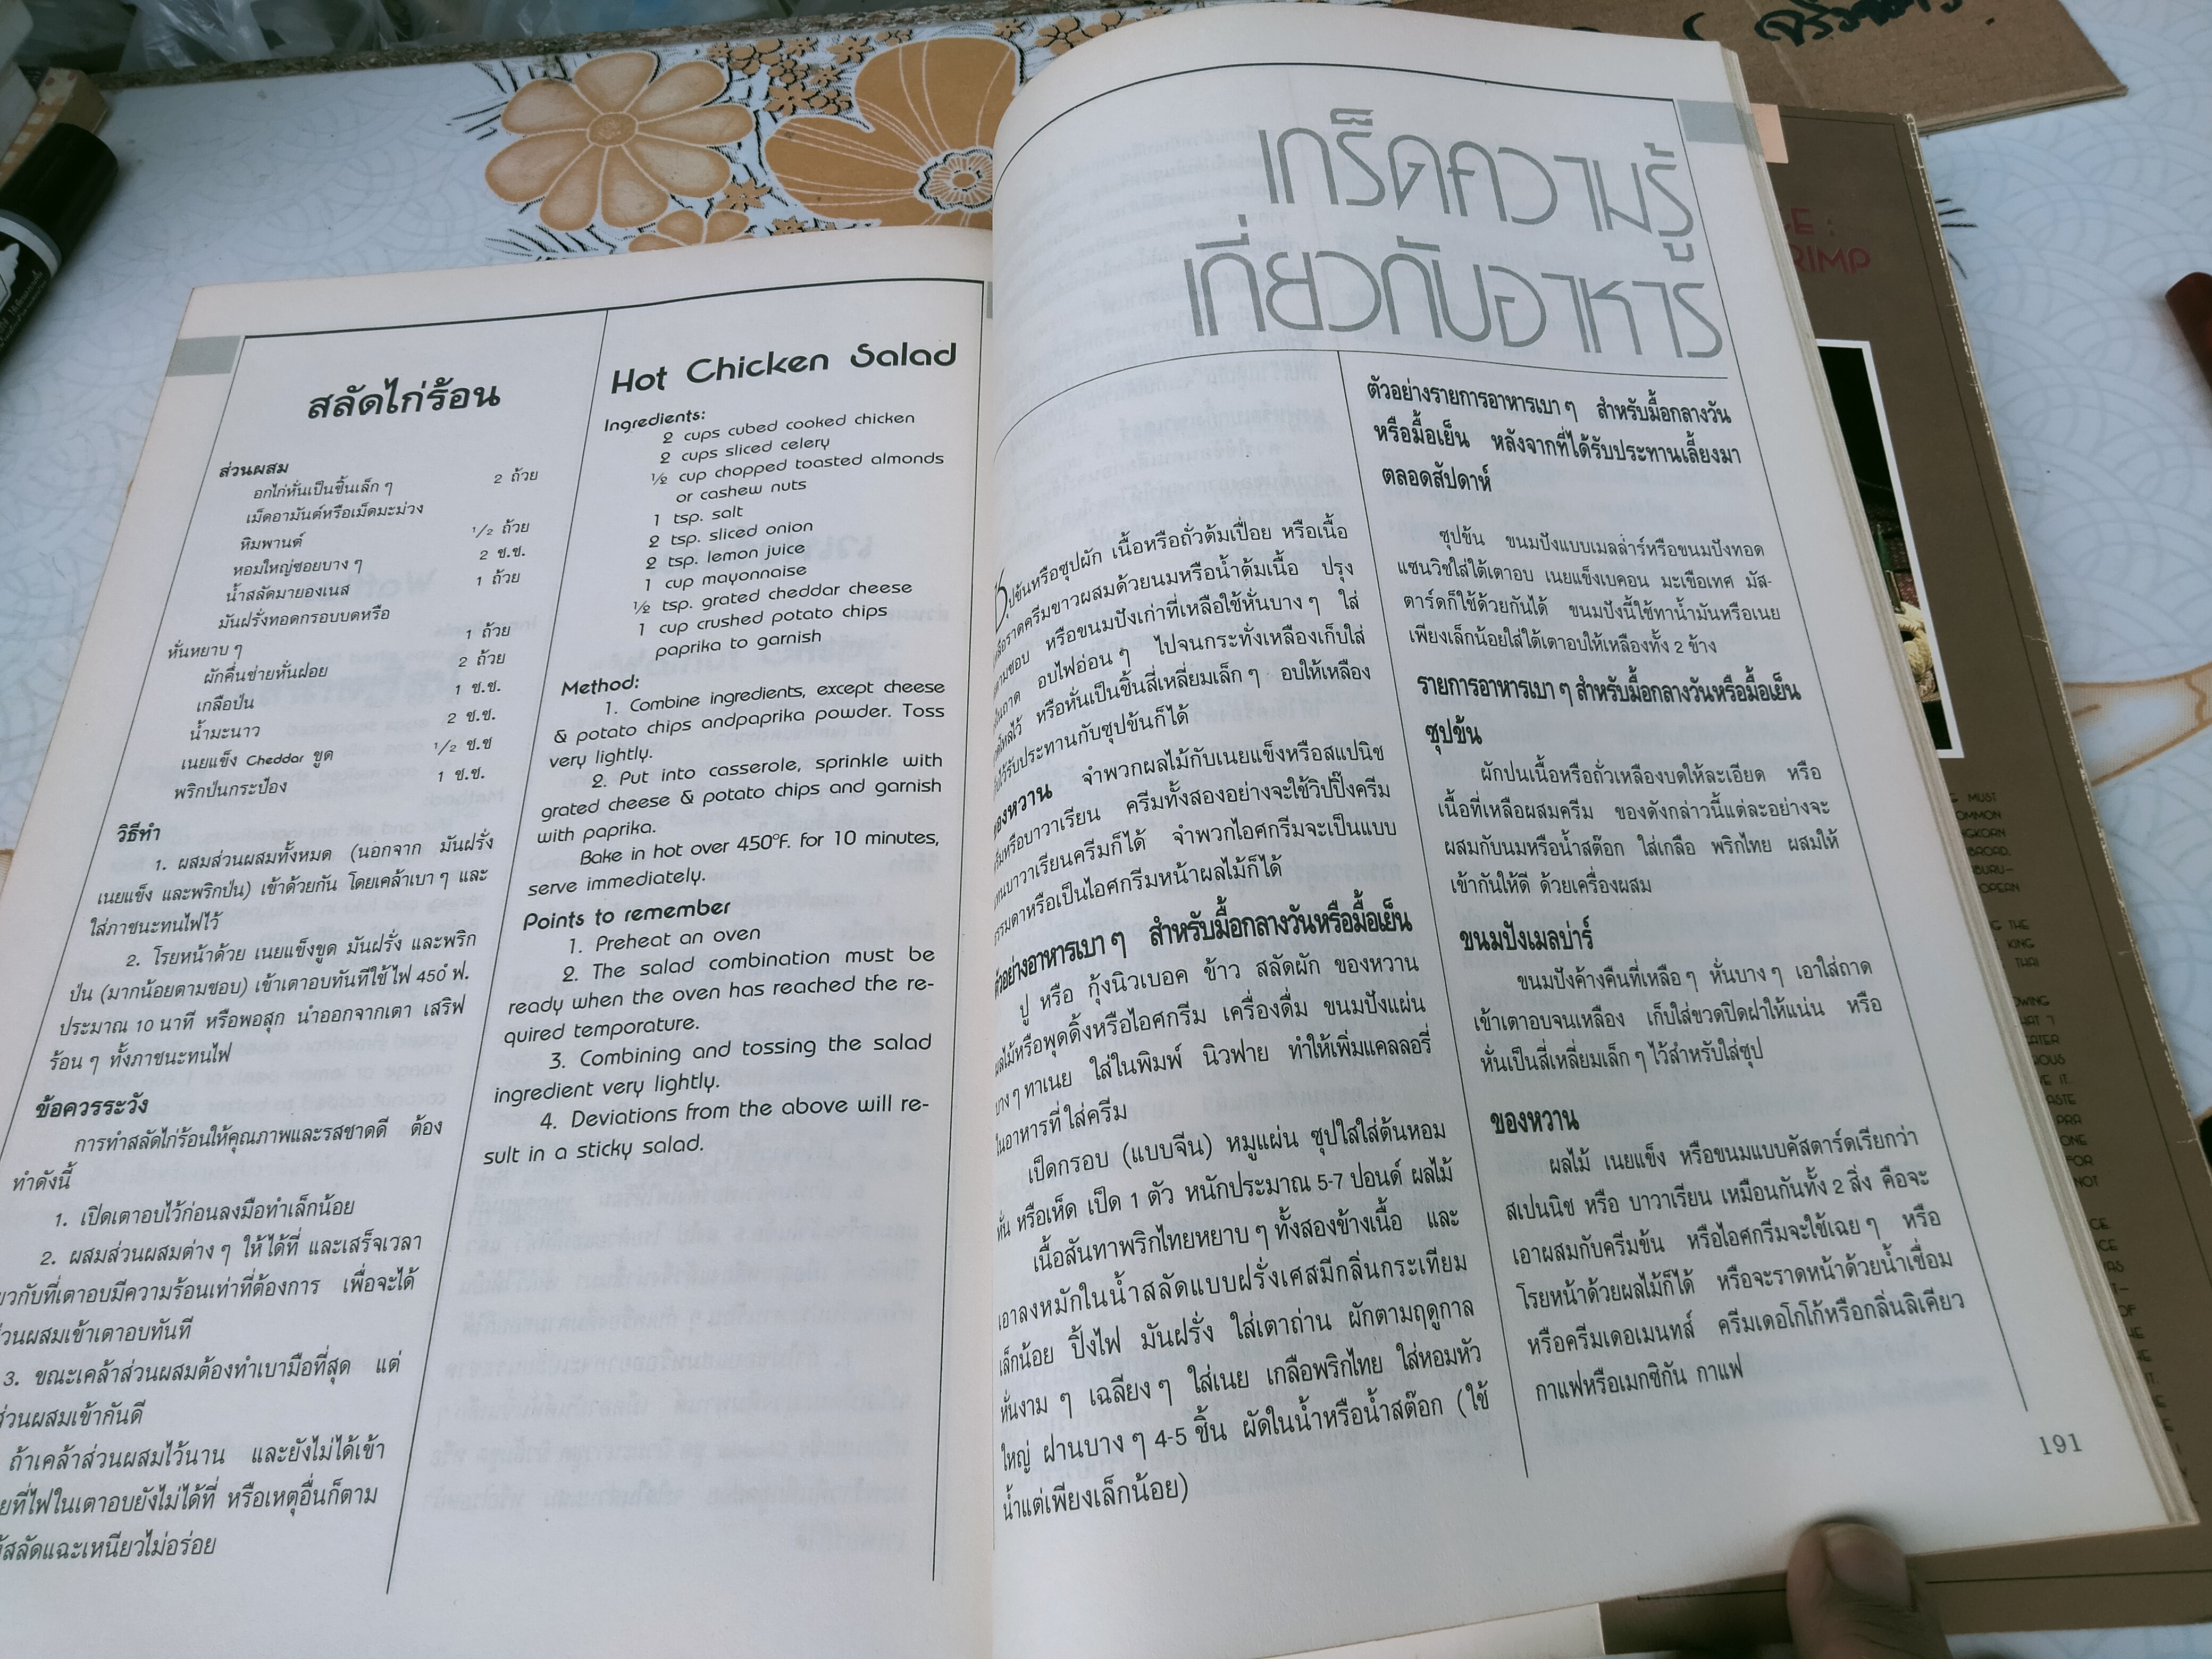 สลัดไก่ร้อน
ส่วนผสม
อกไก่หั่นเป็นชิ้นเล็ก ๆ 2 ถ้วย
เม็ดอามันต์หรือเม็ดมะม่วง
หิมพานต์ 1/2 ถ้วย
หอมใหญ่ซอยบาง ๆ 2 ช.ช.
น้ำสลัดมายองเนส 1 ถ้วย
มันฝรั่งทอดกรอบบดหรือ
หั่นหยาบ ๆ 1 ถ้วย
ผักคื่นช่ายหั่นฝอย 2 ถ้วย
เกลือป่น 1 ช.ช.
น้ำมะนาว 2 ช.ช.
เนยแข็ง Cheddar ขูด 1/2 ช.ช
พริกป่นกระป๋อง 1 ช.ช.
วิธีทำ
1. ผสมส่วนผสมทั้งหมด (นอกจาก มันฝรั่ง
เนยแข็ง และพริกป่น) เข้าด้วยกัน โดยเคล้าเบา ๆ และ
ใส่ภาชนะทนไฟไว้
2. โรยหน้าด้วย เนยแข็งขูด มันฝรั่ง และพริก
ป่น (มากน้อยตามชอบ) เข้าเตาอบทันทีใช้ไฟ 450° ฟ.
ประมาณ 10 นาที หรือพอสุก นำออกจากเตา เสริฟ
ร้อน ๆ ทั้งภาชนะทนไฟ
ข้อควรระวัง
การทำสลัดไก่ร้อนให้คุณภาพและรสชาดดี ต้อง
ทำดังนี้
1. เปิดเตาอบไว้ก่อนลงมือทำเล็กน้อย
2. ผสมส่วนผสมต่าง ๆ ให้ได้ที่ และเสร็จเวลา
กับที่เตาอบมีความร้อนเท่าที่ต้องการ เพื่อจะได้
ส่วนผสมเข้าเตาอบทันที
3. ขณะเคล้าส่วนผสมต้องทำเบามือที่สุด แต่
ส่วนผสมเข้ากันดี
ถ้าเคล้าส่วนผสมไว้นาน และยังไม่ได้เข้า
ที่ไฟในเตาอบยังไม่ได้ที่ หรือเหตุอื่นก็ตาม
สลัดแฉะเหนียวไม่อร่อย
Hot Chicken Salad
Ingredients:
2 cups cubed cooked chicken
2 cups sliced celery
½ cup chopped toasted almonds
or cashew nuts
1 tsp. salt
2 tsp. sliced onion
2 tsp. lemon juice
1 cup mayonnaise
½ tsp. grated cheddar cheese
1 cup crushed potato chips
paprika to garnish
Method:
1. Combine ingredients, except cheese
& potato chips andpaprika powder. Toss
very lightly.
2. Put into casserole, sprinkle with
grated cheese & potato chips and garnish
with paprika.
Bake in hot over 450°F. for 10 minutes,
serve immediately.
Points to remember
1. Preheat an oven
2. The salad combination must be
ready when the oven has reached the re-
quired temporature.
3. Combining and tossing the salad
ingredient very lightly.
4. Deviations from the above will re-
sult in a sticky salad.
เกร็ดความรู้
เกี่ยวกับอาหาร
ซุปข้นหรือซุปผัก เนื้อหรือถั่วต้มเปื่อย หรือเนื้อ
ราดครีมขาวผสมด้วยนมหรือน้ำต้มเนื้อ ปรุง
ตามชอบ หรือขนมปังเก่าที่เหลือใช้หั่นบาง ๆ ใส่
ถาด อบไฟอ่อน ๆ ไปจนกระทั่งเหลืองเก็บใส่
ไว้ หรือหั่นเป็นชิ้นสี่เหลี่ยมเล็ก ๆ อบให้เหลือง
ไว้รับประทานกับซุปข้นก็ได้
ของหวาน จำพวกผลไม้กับเนยแข็งหรือสแปนิช
หรือบาวาเรียน ครีมทั้งสองอย่างจะใช้วิปปิ้งครีม
บาวาเรียนครีมก็ได้ จำพวกไอศกรีมจะเป็นแบบ
ธรรมดาหรือเป็นไอศกรีมหน้าผลไม้ก็ได้
ตัวอย่างอาหารเบา ๆ สำหรับมื้อกลางวันหรือมื้อเย็น
ปู หรือ กุ้งนิวเบอค ข้าว สลัดผัก ของหวาน
ผลไม้หรือพุดดิ้งหรือไอศกรีม เครื่องดื่ม ขนมปังแผ่น
บาง ๆ ทาเนย ใส่ในพิมพ์ นิวฟาย ทำให้เพิ่มแคลลอรี่
ในอาหารที่ใส่ครีม
เป็ดกรอบ (แบบจีน) หมูแผ่น ซุปใสใส่ต้นหอม
หั่น หรือเห็ด เป็ด 1 ตัว หนักประมาณ 5-7 ปอนด์ ผลไม้
เนื้อสันทาพริกไทยหยาบ ๆ ทั้งสองข้างเนื้อ และ
เอาลงหมักในน้ำสลัดแบบฝรั่งเศสมีกลิ่นกระเทียม
เล็กน้อย ปิ้งไฟ มันฝรั่ง ใส่เตาถ่าน ผักตามฤดูกาล
หั่นงาม ๆ เฉลียง ๆ ใส่เนย เกลือพริกไทย ใส่หอมหัว
ใหญ่ ฝานบาง ๆ 4-5 ชิ้น ผัดในน้ำหรือน้ำสต๊อก (ใช้
น้ำแต่เพียงเล็กน้อย)
ตัวอย่างรายการอาหารเบา ๆ สำหรับมื้อกลางวัน
หรือมื้อเย็น หลังจากที่ได้รับประทานเลี้ยงมา
ตลอดสัปดาห์
ซุปข้น ขนมปังแบบเมลล่าร์หรือขนมปังทอด
แซนวิชใส่ใต้เตาอบ เนยแข็งเบคอน มะเขือเทศ มัส-
ตาร์ดก็ใช้ด้วยกันได้ ขนมปังนี้ใช้ทาน้ำมันหรือเนย
เพียงเล็กน้อยใส่ใต้เตาอบให้เหลืองทั้ง 2 ข้าง
รายการอาหารเบา ๆ สำหรับมื้อกลางวันหรือมื้อเย็น
ซุปข้น
ผักปนเนื้อหรือถั่วเหลืองบดให้ละเอียด หรือ
เนื้อที่เหลือผสมครีม ของดังกล่าวนี้แต่ละอย่างจะ
ผสมกับนมหรือน้ำสต๊อก ใส่เกลือ พริกไทย ผสมให้
เข้ากันให้ดี ด้วยเครื่องผสม
ขนมปังเมลบ่าร์
ขนมปังค้างคืนที่เหลือ ๆ หั่นบาง ๆ เอาใส่ถาด
เข้าเตาอบจนเหลือง เก็บใส่ขวดปิดฝาให้แน่น หรือ
หั่นเป็นสี่เหลี่ยมเล็ก ๆ ไว้สำหรับใส่ซุป
ของหวาน
ผลไม้ เนยแข็ง หรือขนมแบบคัสตาร์ดเรียกว่า
สเปนนิช หรือ บาวาเรียน เหมือนกันทั้ง 2 สิ่ง คือจะ
เอาผสมกับครีมข้น หรือไอศกรีมจะใช้เฉย ๆ หรือ
โรยหน้าด้วยผลไม้ก็ได้ หรือจะราดหน้าด้วยน้ำเชื่อม
หรือครีมเดอเมนทส์ ครีมเดอโกโก้หรือกลิ่นลิเคียว
กาแฟหรือเมกซิกัน กาแฟ
191